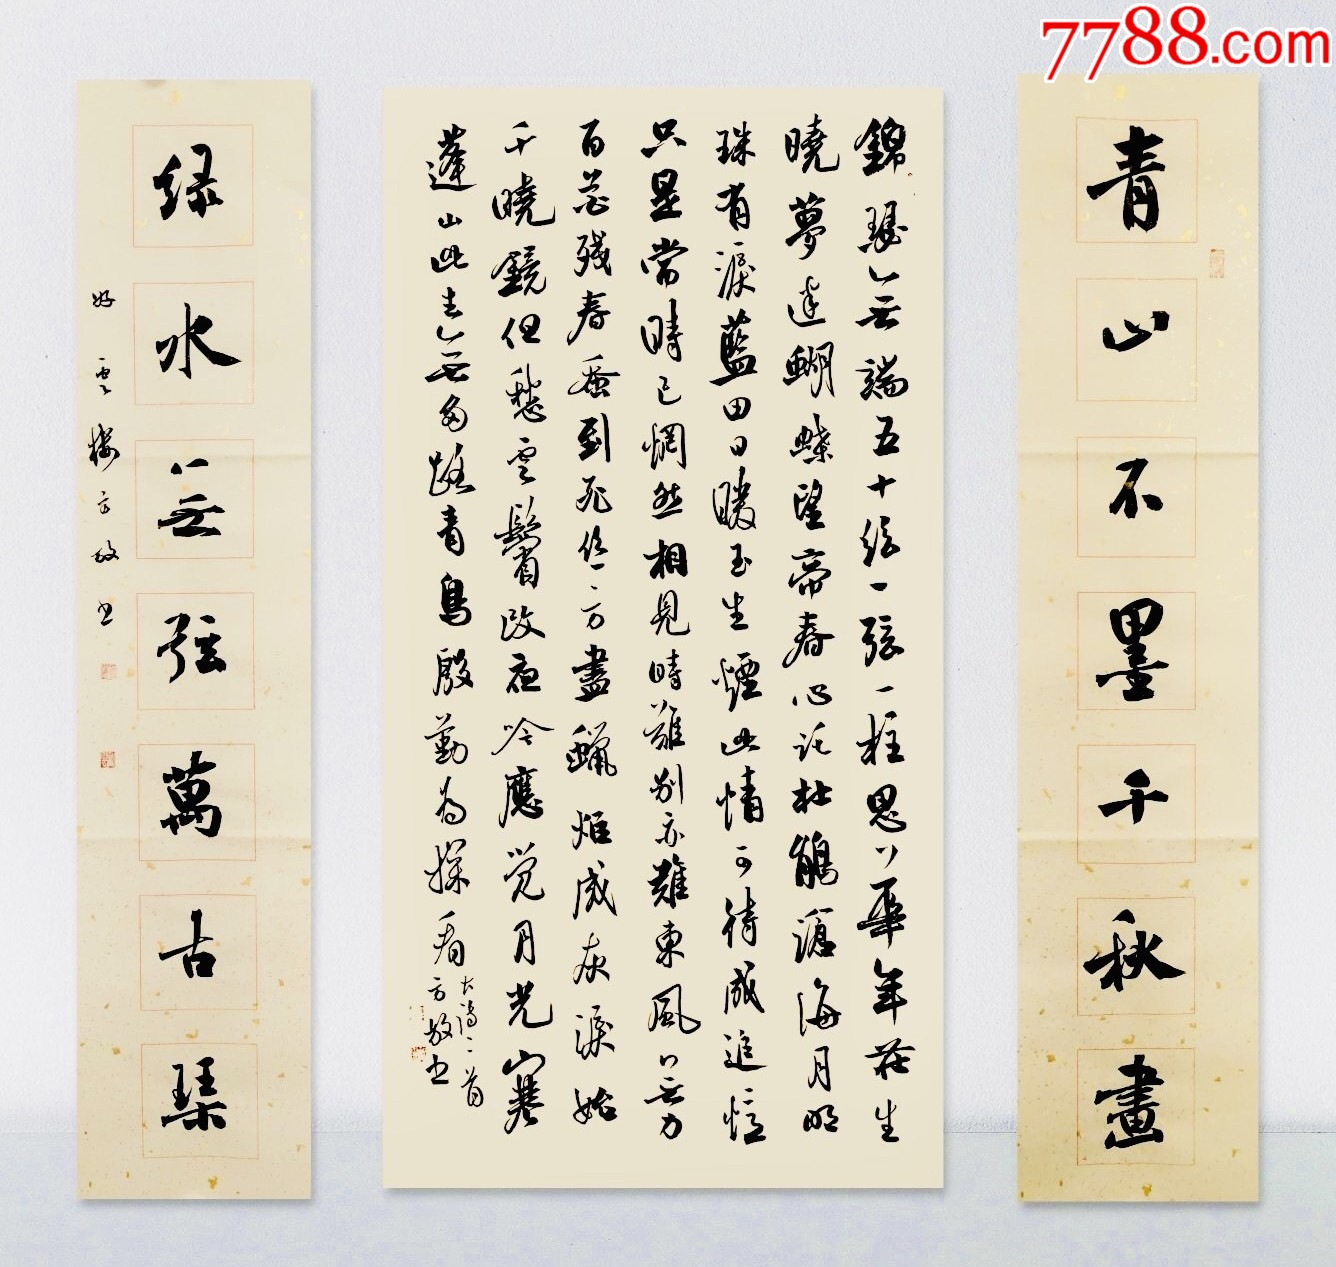 7788.com
青山不墨千秋畫
錦瑟無端五十弦一弦一柱思華年莊生
曉夢迷蝴蝶望帝春心託杜鵑滄海月明
珠有淚藍田日暖玉生煙此情可待成追憶
只是當時已惘然相見時難別亦難東風無力
百花殘春蚕到死絲方盡蠟炬成灰淚始
干曉鏡但愁雲鬢改夜吟應覺月光寒
蓬山此去無多路青鳥殷勤為探看
詩二首
方敏书
绿水無弦萬古琴
好雲樓方敏书